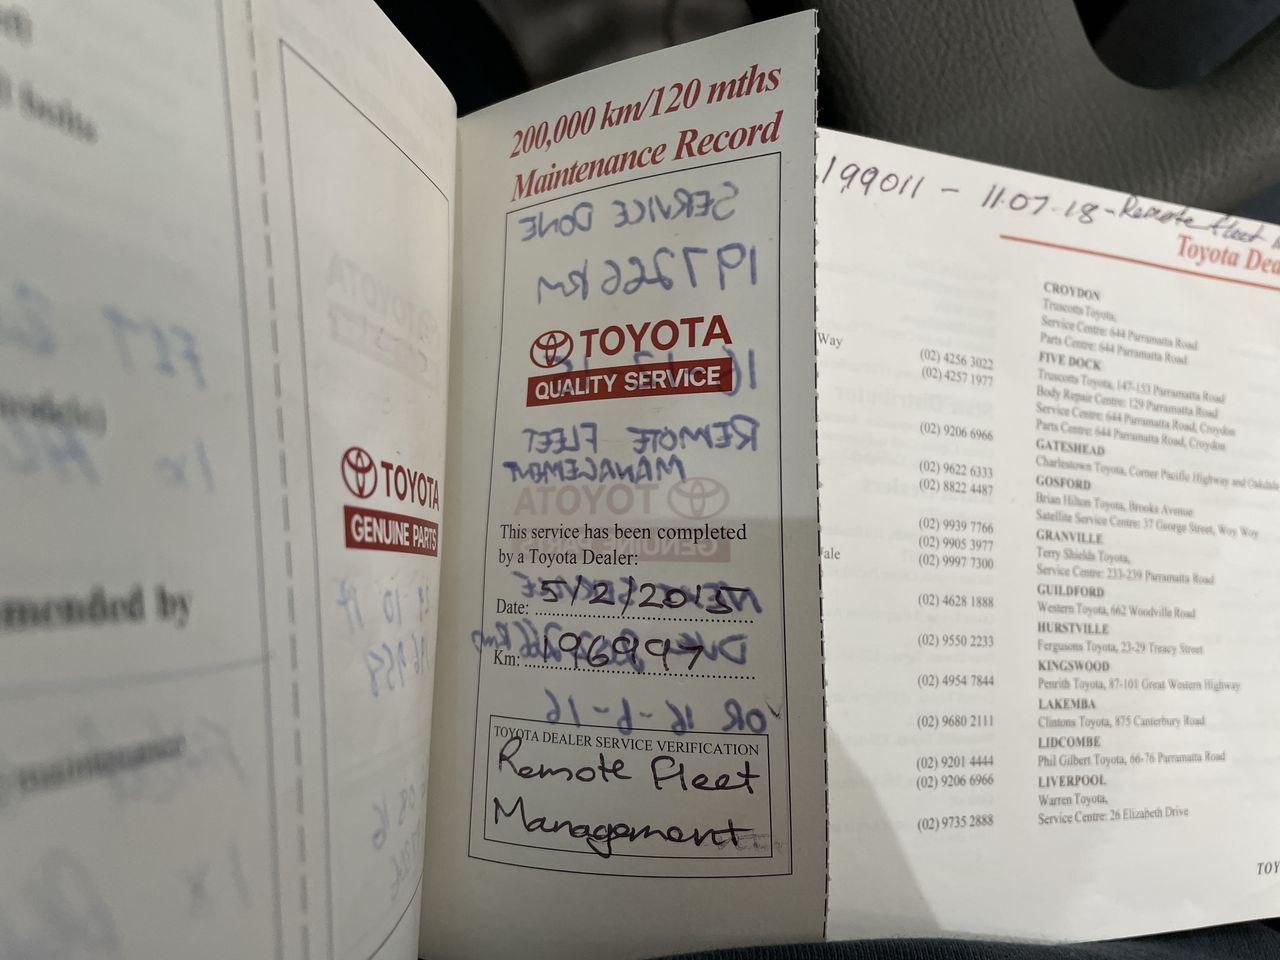 200,000 km/120 mths
Maintenance Record
SERVICE DONE
197266 km
TOYOTA
QUALITY SERVICE
REMOTE FLEET
MANAGEMENT
This service has been completed
by a Toyota Dealer:
Date: 5/2/2015
Km: 196997
OR 16-6-16
TOYOTA DEALER SERVICE VERIFICATION
Remote Fleet
Management
TOYOTA
GENUINE PARTS
mended by
maintenance
199011 - 11.07.18 - Remote Fleet
Toyota
Way
(02) 4256 3022
(02) 4257 1977
(02) 9206 6966
(02) 9622 6333
(02) 8822 4487
(02) 9939 7766
(02) 9905 3977
(02) 9997 7300
(02) 4628 1888
(02) 9550 2233
(02) 4954 7844
(02) 9680 2111
(02) 9201 4444
(02) 9206 6966
(02) 9735 2888
CROYDON
Truscotts Toyota,
Service Centre: 644 Parramatta Road
Parts Centre: 644 Parramatta Road
FIVE DOCK
Truscotts Toyota, 147-153 Parramatta Road
Body Repair Centre: 129 Parramatta Road
Service Centre: 644 Parramatta Road, Croydon
Parts Centre: 644 Parramatta Road, Croydon
GATESHEAD
Charlestown Toyota, Corner Pacific Highway and Oakdale
GOSFORD
Brian Hilton Toyota, Brooks Avenue
Satellite Service Centre: 37 George Street, Woy Woy
GRANVILLE
Terry Shields Toyota,
Service Centre: 233-239 Parramatta Road
GUILDFORD
Western Toyota, 662 Woodville Road
HURSTVILLE
Fergusons Toyota, 23-29 Treacy Street
KINGSWOOD
Penrith Toyota, 87-101 Great Western Highway
LAKEMBA
Clintons Toyota, 875 Canterbury Road
LIDCOMBE
Phil Gilbert Toyota, 66-76 Parramatta Road
LIVERPOOL
Warren Toyota,
Service Centre: 26 Elizabeth Drive